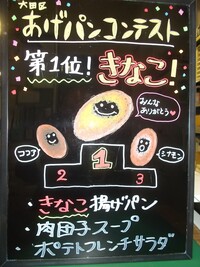 大田区
あげパンコンテスト
第1位! きなこ!
みんな
ありがとう♥
ココア
シナモン
1
2
3
・きなこ揚げパン
・肉団子スープ
・ポテトフレンチサラダ